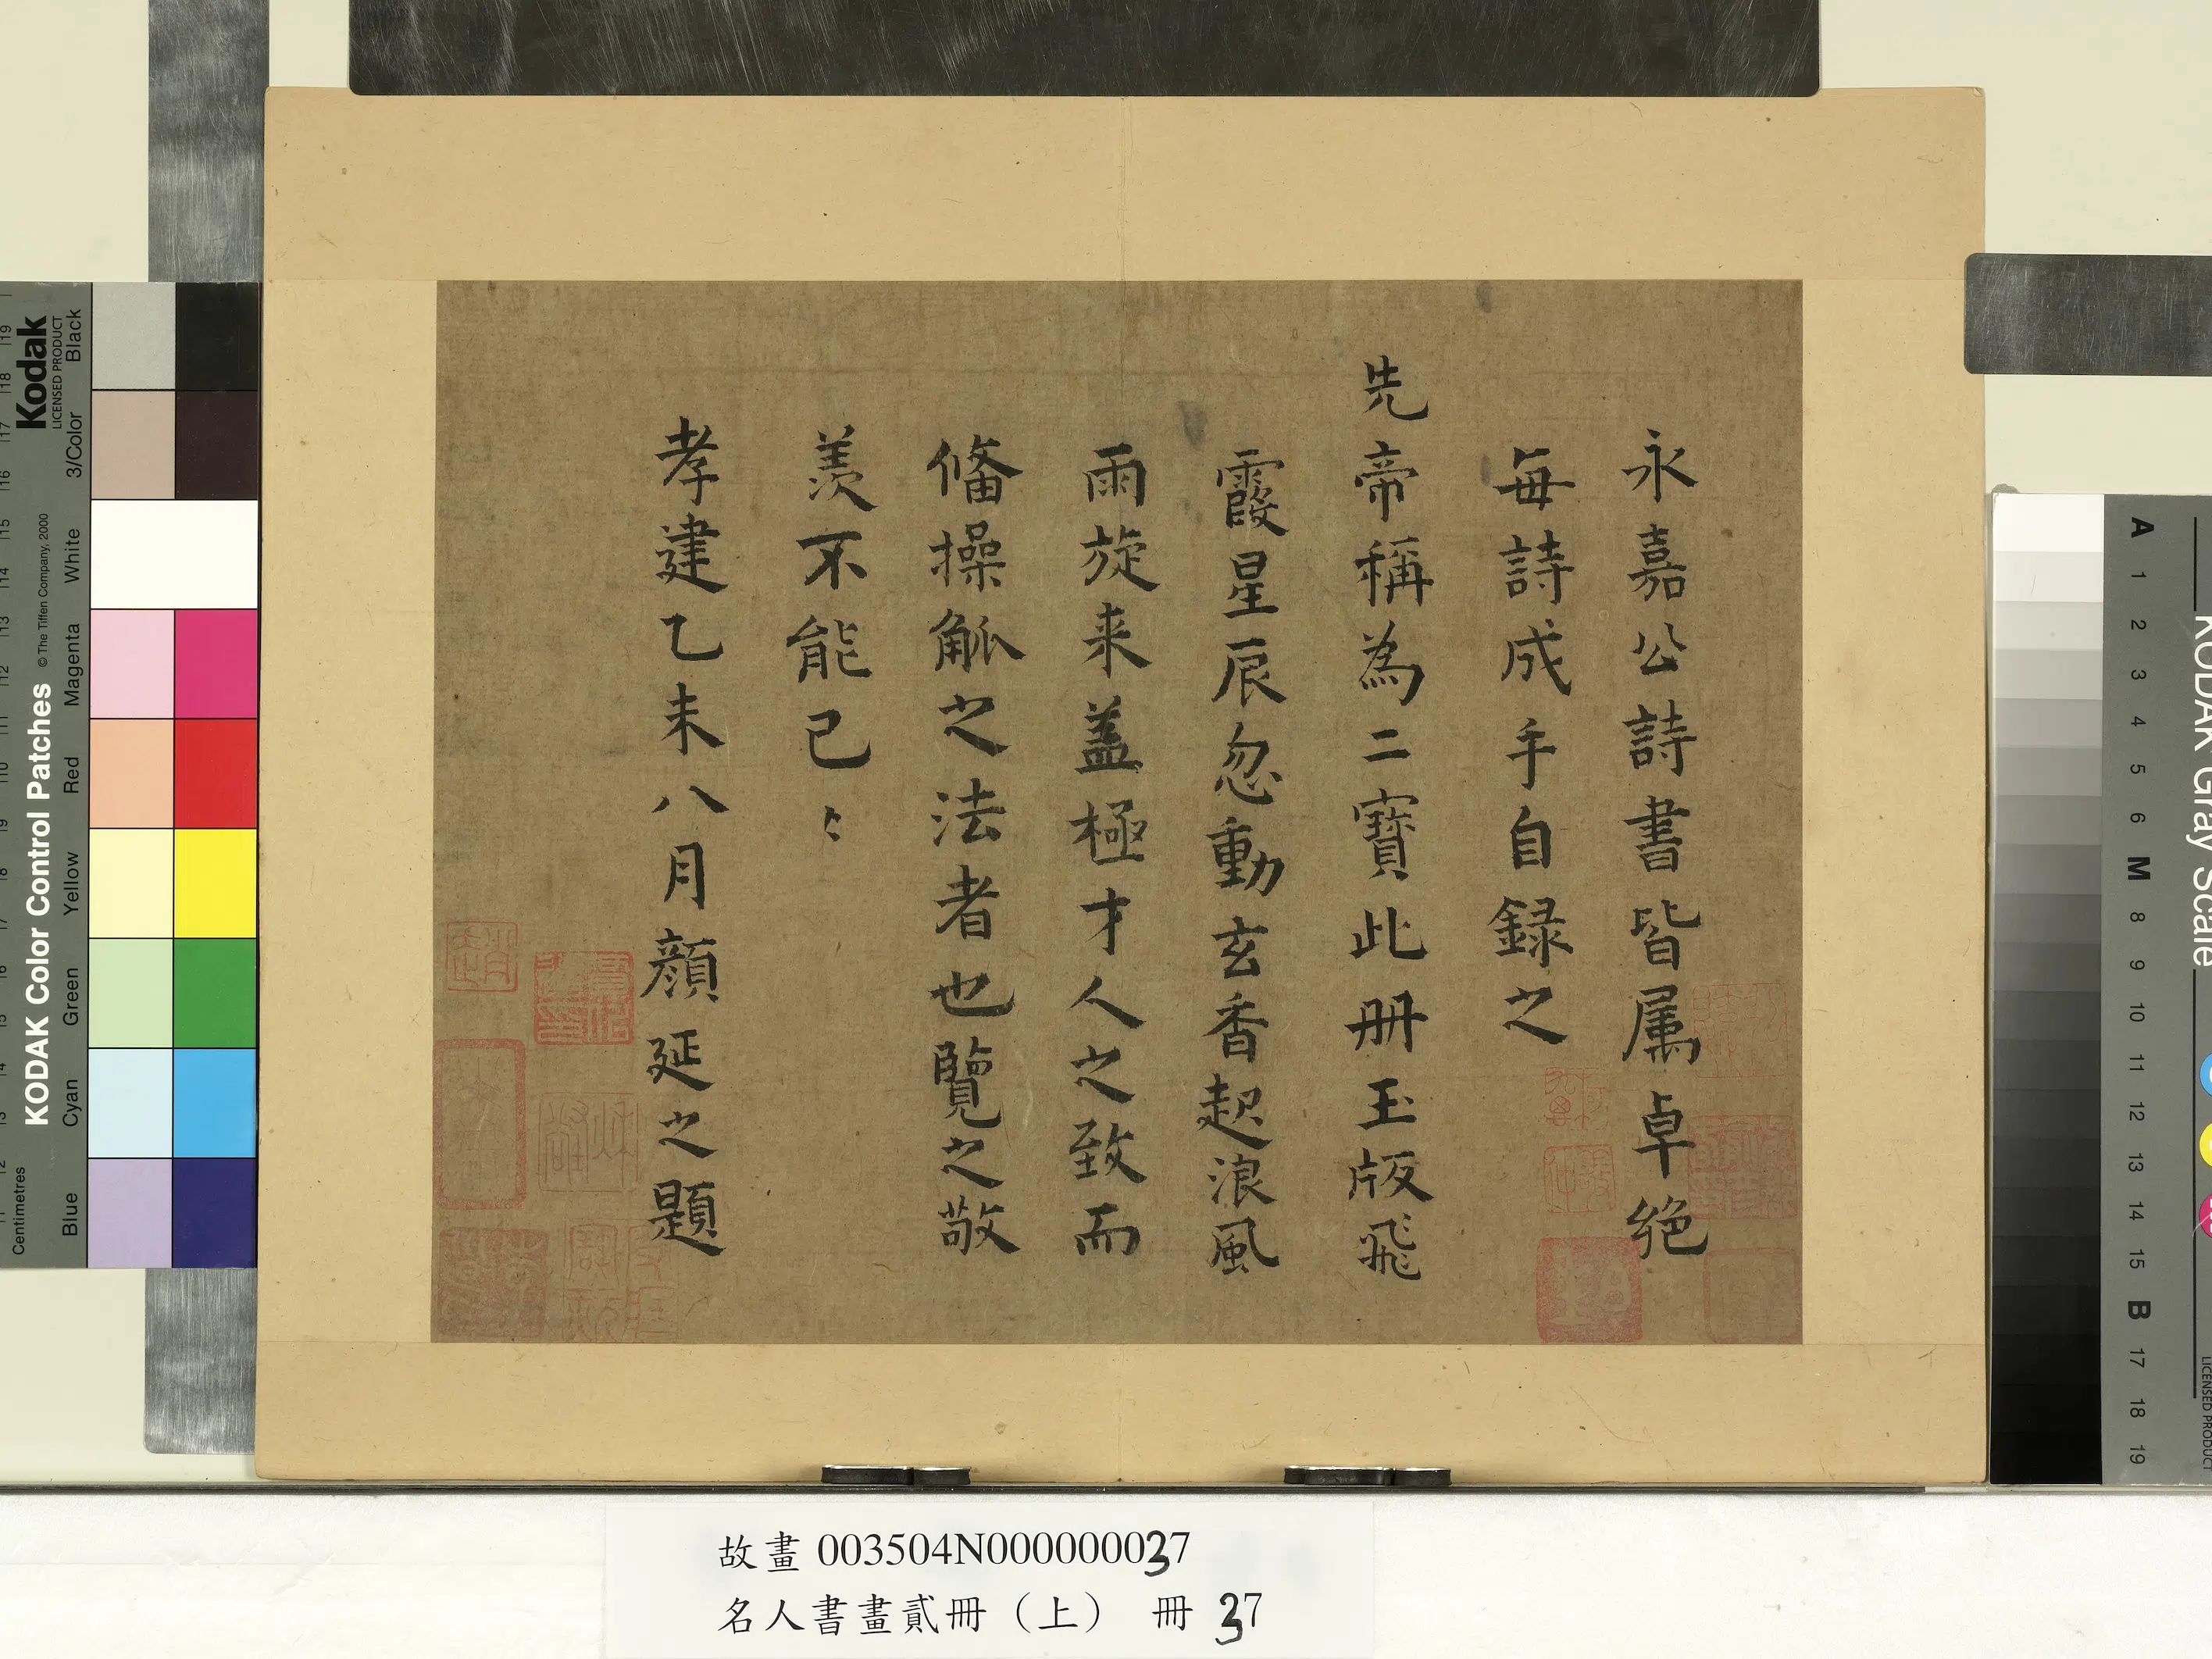 永嘉公詩書皆属卓絶
每詩成手自録之
先帝稱為二寶此册玉版飛
霞星辰忽動玄香起浪風
雨旋来蓋極才人之致而
俻操觚之法者也覽之敬
羨不能已〻
孝建乙未八月顔延之題
故畫 003504N000000037
名人書畫貳冊（上） 冊 37
Kodak
LICENSED PRODUCT
KODAK Color Control Patches
© The Tiffen Company, 2000
Centimetres
Blue
Cyan
Green
Yellow
Red
Magenta
White
3/Color
Black
KODAK Gray Scale
LICENSED PRODUCT
A 1 2 3 4 5 6 M 8 9 10 11 12 13 14 15 B 17 18 19